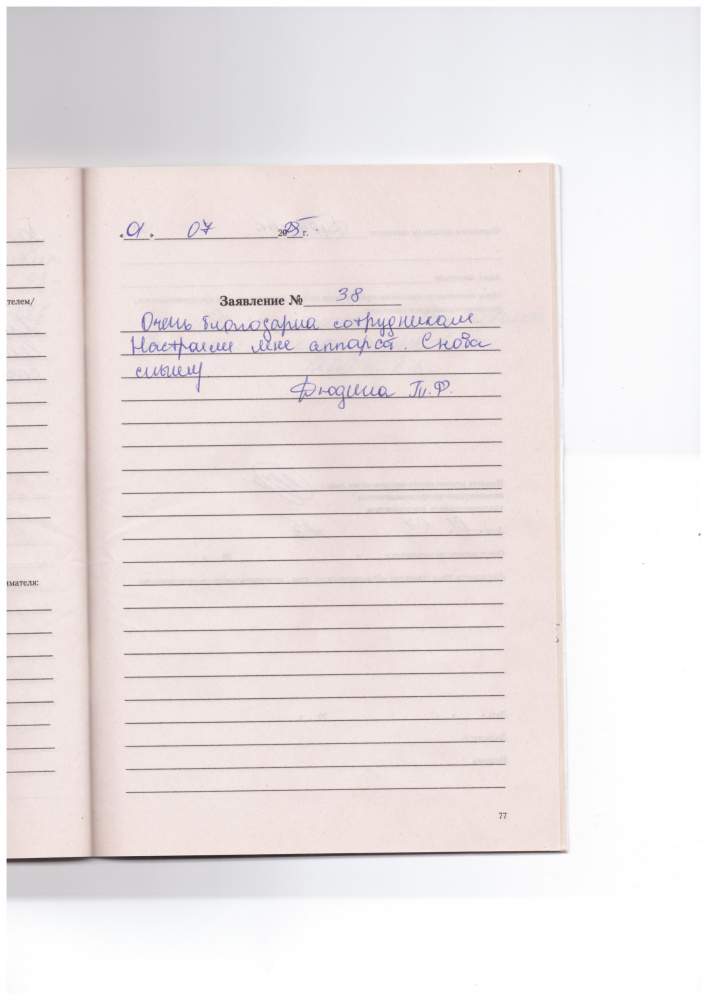 07 2025 г.
телем/
Заявление № 38
Очень благодарна сотрудникам
Настроили мне аппарат. Снова
слышу
Т.Ф.
имателя:
77